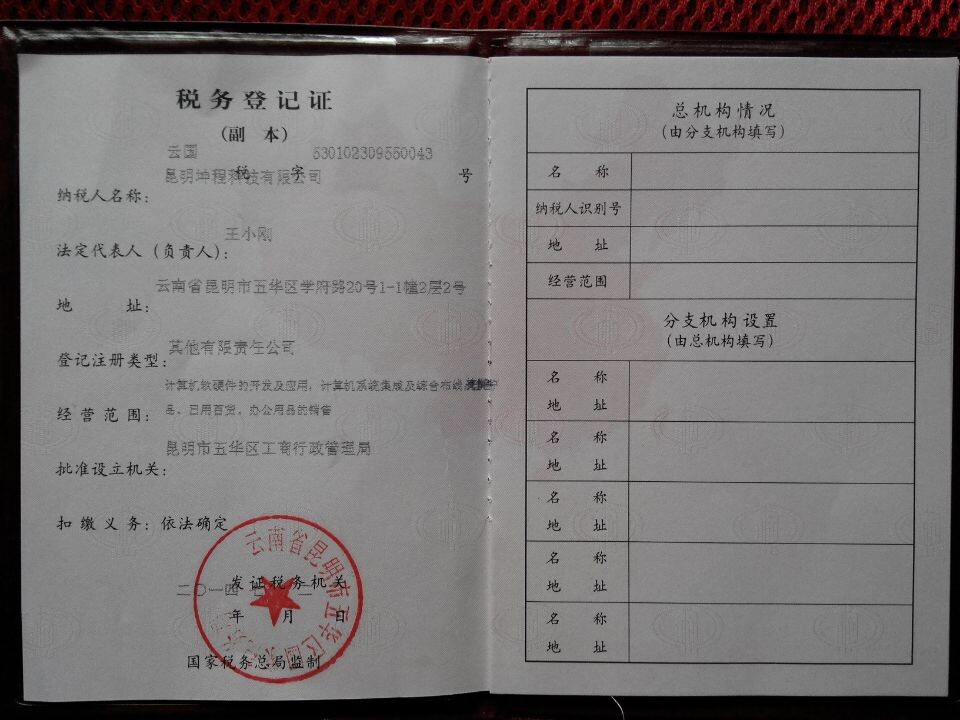 税务登记证
(副 本)
云国 530102309550043
税 字 号
昆明坤程科技有限公司
纳税人名称:
王小刚
法定代表人(负责人):
云南省昆明市五华区学府路20号1-1幢2层2号
地 址:
其他有限责任公司
登记注册类型:
计算机软硬件的开发及应用;计算机系统集成及综合布线
经营范围: 品、日用百货、办公用品的销售
昆明市五华区工商行政管理局
批准设立机关:
扣缴义务:依法确定
云南省昆明市五华区国
发证税务机关
二〇一四
年 月 日
国家税务总局监制
总机构情况
(由分支机构填写)
名 称
纳税人识别号
地 址
经营范围
分支机构设置
(由总机构填写)
名 称
地 址
名 称
地 址
名 称
地 址
名 称
地 址
名 称
地 址